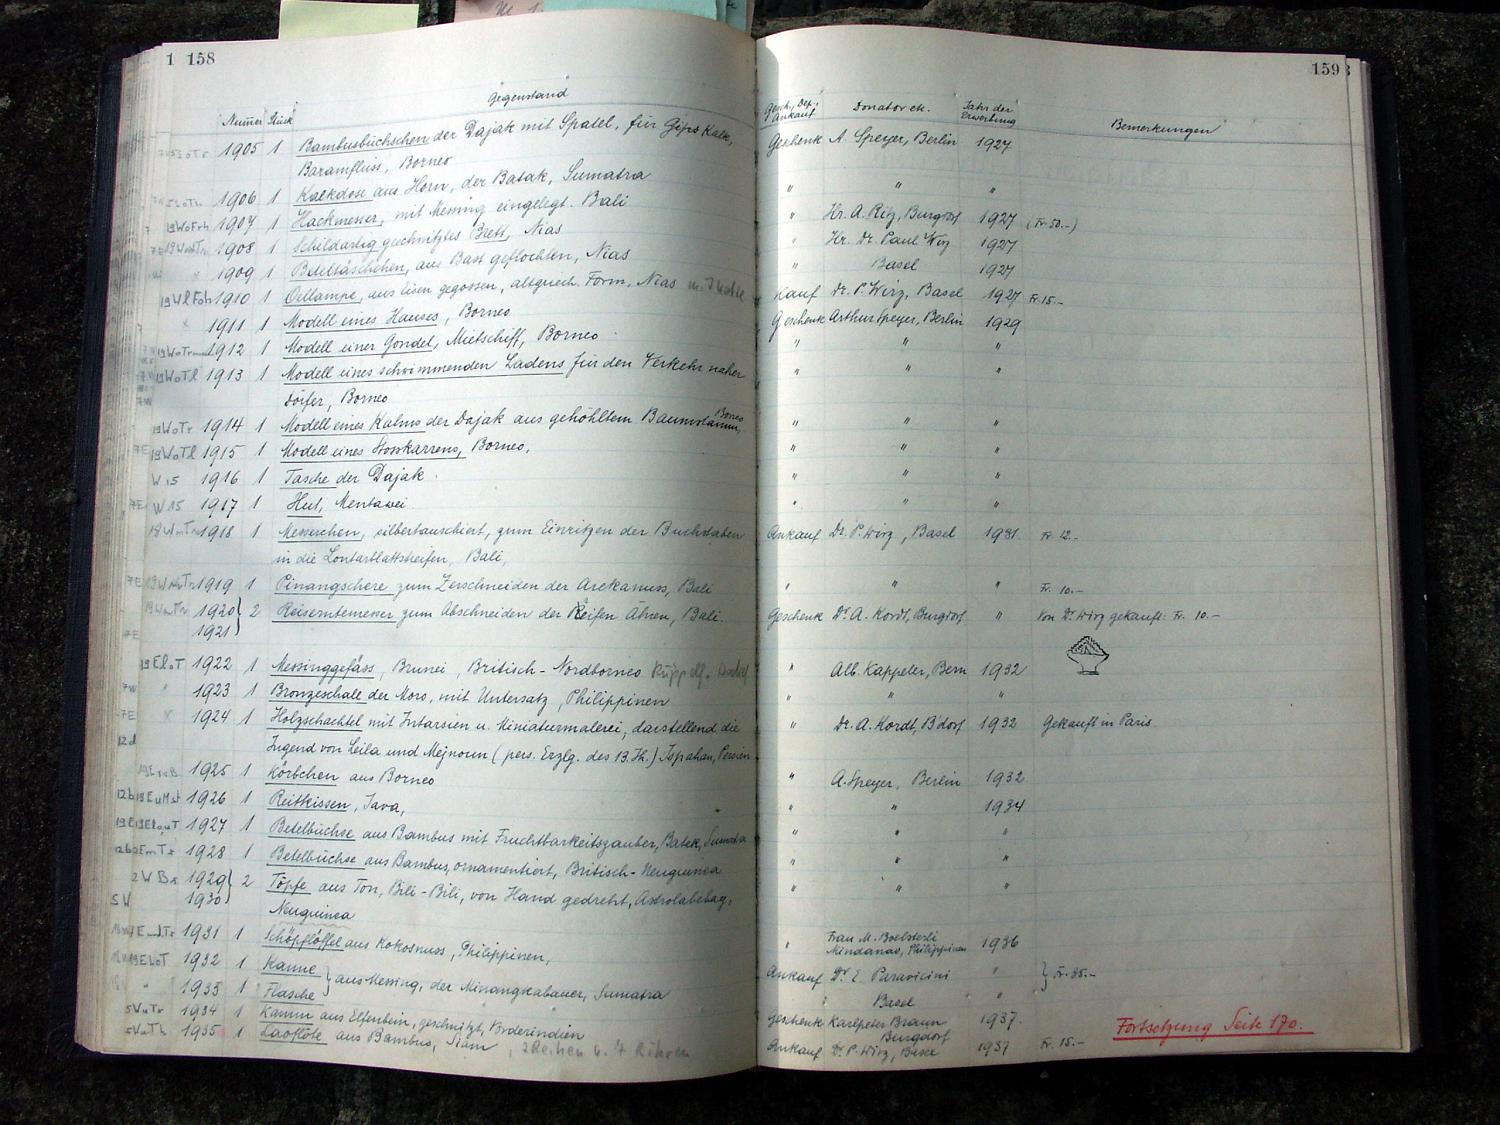 1 158
Gegenstand
Nummer Stück
1905 1 Bambusbüchschen der Dajak mit Spatel, für Gips Kalk,
Baramfluss, Borneo
1906 1 Kalkdose aus Horn, der Batak, Sumatra
1907 1 Hackmesser, mit Messing eingelegt. Bali
1908 1 Schildartig geschnitztes Brett, Nias
1909 1 Beteltäschchen, aus Bast geflochten, Nias
1910 1 Oellampe, aus Eisen gegossen, altgriech. Form, Nias
1911 1 Modell eines Hauses, Borneo
1912 1 Modell einer Gondel, Mietschiff, Borneo
1913 1 Modell eines schwimmenden Ladens für den Verkehr naher
Dörfer, Borneo
1914 1 Modell eines Kahns der Dajak aus gehöhltem Baumstamm, Borneo
1915 1 Modell eines Stosskarrens, Borneo,
W 15 1916 1 Tasche der Dajak
W 15 1917 1 Hut, Mentawei
1918 1 Messerchen, silbertauschiert, zum Einritzen der Buchstaben
in die Lontarblattstreifen, Bali,
1919 1 Pinangschere zum Zerschneiden der Arekanuss, Bali
1920 } 2 Reiserntemesser zum Abschneiden der Reifen Ähren, Bali
1921
1922 1 Messinggefäss, Brunei, Britisch-Nordborneo
1923 1 Bronzeschale der Moro, mit Untersatz, Philippinen
1924 1 Holzschachtel mit Intarsien u. Miniaturmalerei, darstellend die
Jugend von Leila und Mejnoun (pers. Erzlg. des 13. Jh.) Ispahan, Persien
1925 1 Körbchen aus Borneo
1926 1 Reitkissen, Java,
1927 1 Betelbüchse aus Bambus mit Fruchtbarkeitszauber, Batak, Sumatra
1928 1 Betelbüchse aus Bambus, ornamentiert, Britisch-Neuguinea
1929 } 2 Töpfe aus Ton, Bili-Bili, von Hand gedreht, Astrolabebay,
1930 Neuguinea
1931 1 Schöpflöffel aus Kokosnuss, Philippinen,
1932 1 Kanne } aus Messing, der Minangkabauer, Sumatra
1933 1 Flasche
1934 1 Kamm aus Elfenbein, geschnitzt, Vorderindien
1935 1 Laoflöte aus Bambus, Siam, 2 Reihen u. 7 Röhren
159
Gesch., Dep., Ankauf
Donator etc.
Jahr der Erwerbung
Bemerkungen
Geschenk A. Speyer, Berlin 1927
" " "
" Hr. A. Ritz, Burgdorf 1927 (Fr. 50.-)
" Hr. Dr. Paul Wirz 1927
" Basel 1927
Kauf Dr. P. Wirz, Basel 1927 Fr. 15.-
Geschenk Arthur Speyer, Berlin 1929
" " "
" " "
" " "
" " "
" " "
" " "
Ankauf Dr. P. Wirz, Basel 1931 Fr. 12.-
" " " Fr. 10.-
Geschenk Dr. A. Kordt, Burgdorf " Von Dr. Wirz gekauft: Fr. 10.-
" Alb. Kappeler, Bern 1932
" " "
" Dr. A. Kordt, B'dorf 1932 Gekauft in Paris
" A. Speyer, Berlin 1932
" " 1934
" " "
" " "
" " "
" Frau M. Boelsterli
Mindanao, Philippinen 1936
Ankauf Dr. E. Paravicini " } Fr. 35.-
" Basel "
Geschenk Karlpeter Braun 1937
Burgdorf
Ankauf Dr. P. Wirz, Basel 1937 Fr. 15.-
Fortsetzung Seite 170.